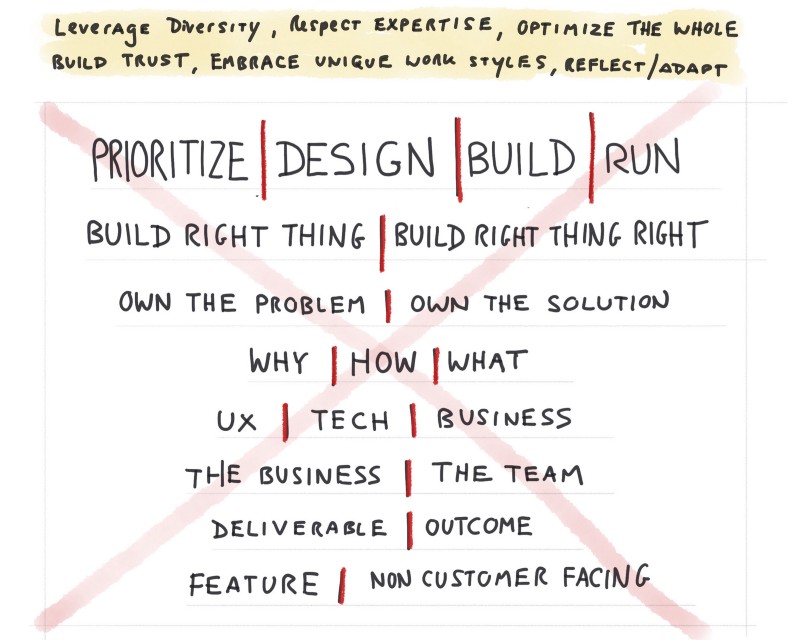 Leverage Diversity, Respect EXPERTISE, OPTIMIZE THE WHOLE
BUILD TRUST, EMBRACE UNIQUE WORK STYLES, REFLECT/ADAPT
PRIORITIZE | DESIGN | BUILD | RUN
BUILD RIGHT THING | BUILD RIGHT THING RIGHT
OWN THE PROBLEM | OWN THE SOLUTION
WHY | HOW | WHAT
UX | TECH | BUSINESS
THE BUSINESS | THE TEAM
DELIVERABLE | OUTCOME
FEATURE | NON CUSTOMER FACING